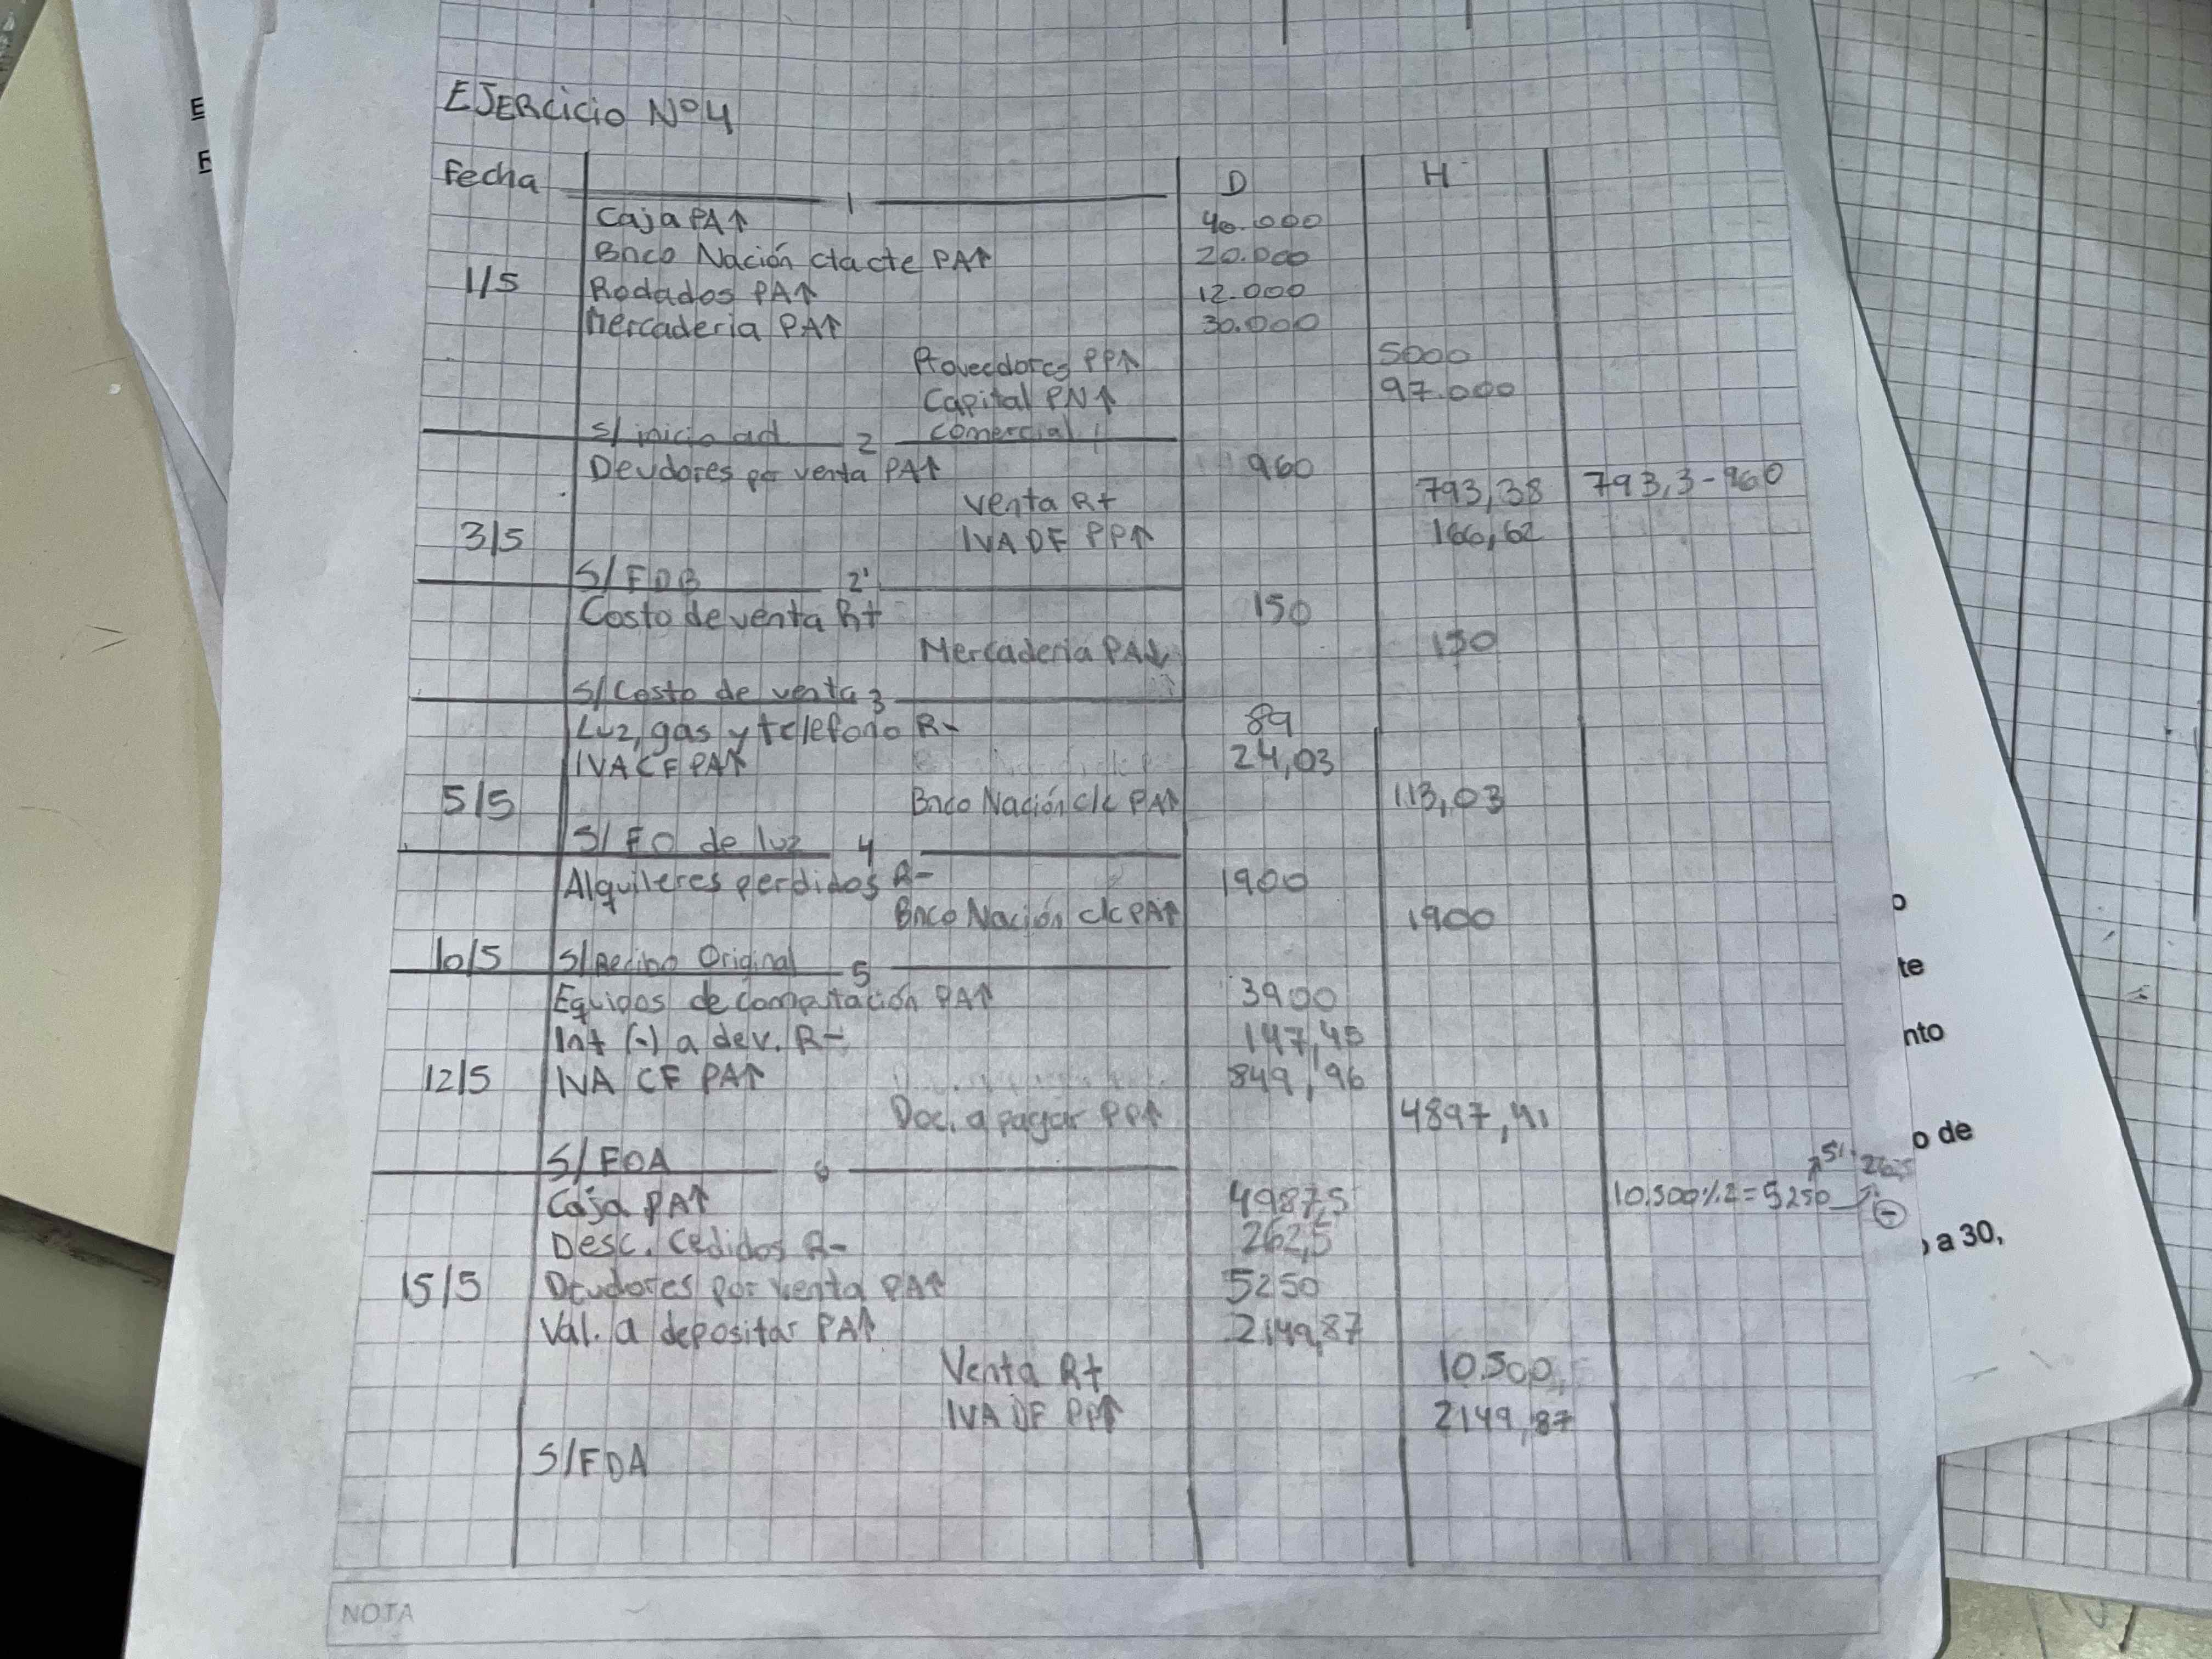 EJERcicio Nº4
Fecha 1 D H
Caja PA↑ 40.000
Bnco Nación cta cte PA↑ 20.000
1/5 Rodados PA↑ 12.000
Mercaderia PA↑ 30.000
Proveedores PP↑ 5000
Capital PN↑ 97.000
S/ inicio ad comercial
2
Deudores por venta PA↑ 960
Venta R+ 793,38 793,3-960
3/5 IVA DF PP↑ 166,62
S/FDB 2'
Costo de venta R+ 150
Mercaderia PA↓ 150
S/Costo de venta 3
Luz, gas y telefono R- 89
IVA CF PA↑ 24,03
5/5 Bnco Nación c/c PA↑ 113,03
S/ FO de luz 4
Alquileres perdidos R- 1900
Bnco Nación c/c PA↑ 1900
10/5 S/Recibo Original 5
Equipos de computación PA↑ 3900
Int (-) a dev. R- 147,45
12/5 IVA CF PA↑ 849,96
Doc. a pagar PP↑ 4897,41
S/ FOA 6
Caja PA↑ 4987,5 10.500%2=5250 -
Desc. Cedidos R- 262,5
15/5 Deudores por venta PA↑ 5250
Val. a depositar PA↑ 2149,87
Venta R+ 10.500
IVA DF PP↑ 2149,87
S/FDA
NOTA
E
F
o
te
nto
o de
a 30,